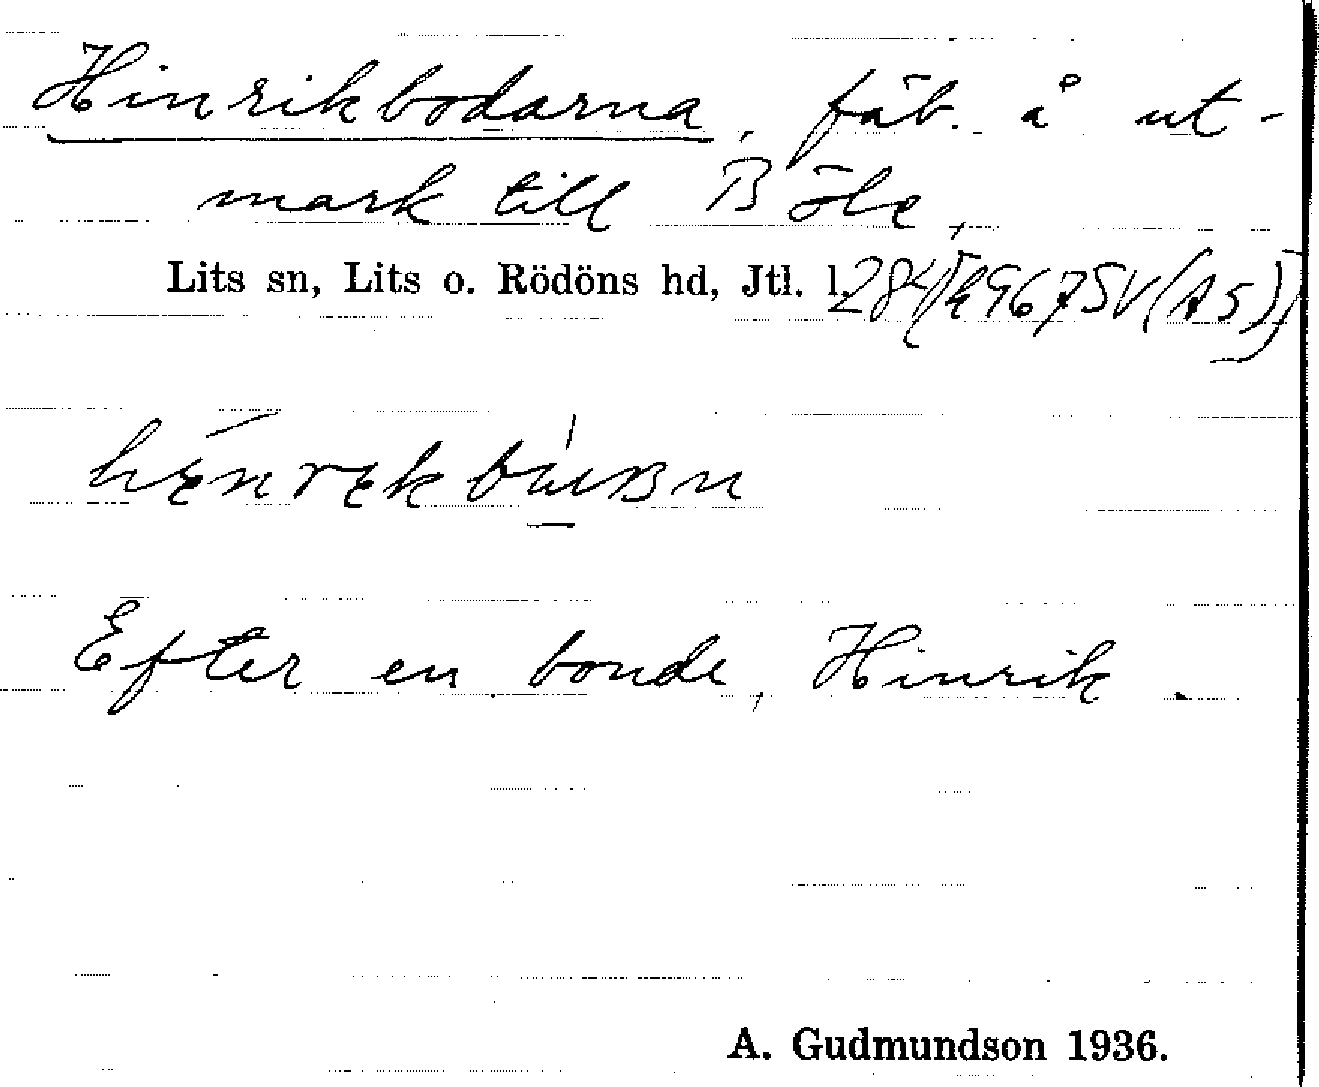 Hinrikbodarna, fäb. å ut-
mark till Böle,
Lits sn, Lits o. Rödöns hd, Jtl. l.
Efter en bonde, Hinrik.
A. Gudmundson 1936.